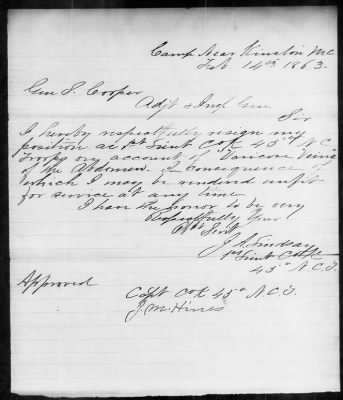 Camp Near Kinston N.C
Feb. 14th 1863.
Gen S. Cooper
Adjt & Insp Gen
Sir
I hereby respectfully resign my
position as 1st Lieut Co K 45th N.C
Troops on account of Varicose Veins
of the Abdomen In consequence of
which I may be rendered unfit
for service at any time
I have the honor to be very
Respectfully Your
Obt Servt
J. A. Lindsay
1st Lieut Co K
45th N.C.T.
Approved
Capt Co K 45th N.C.T.
J. M. Hines